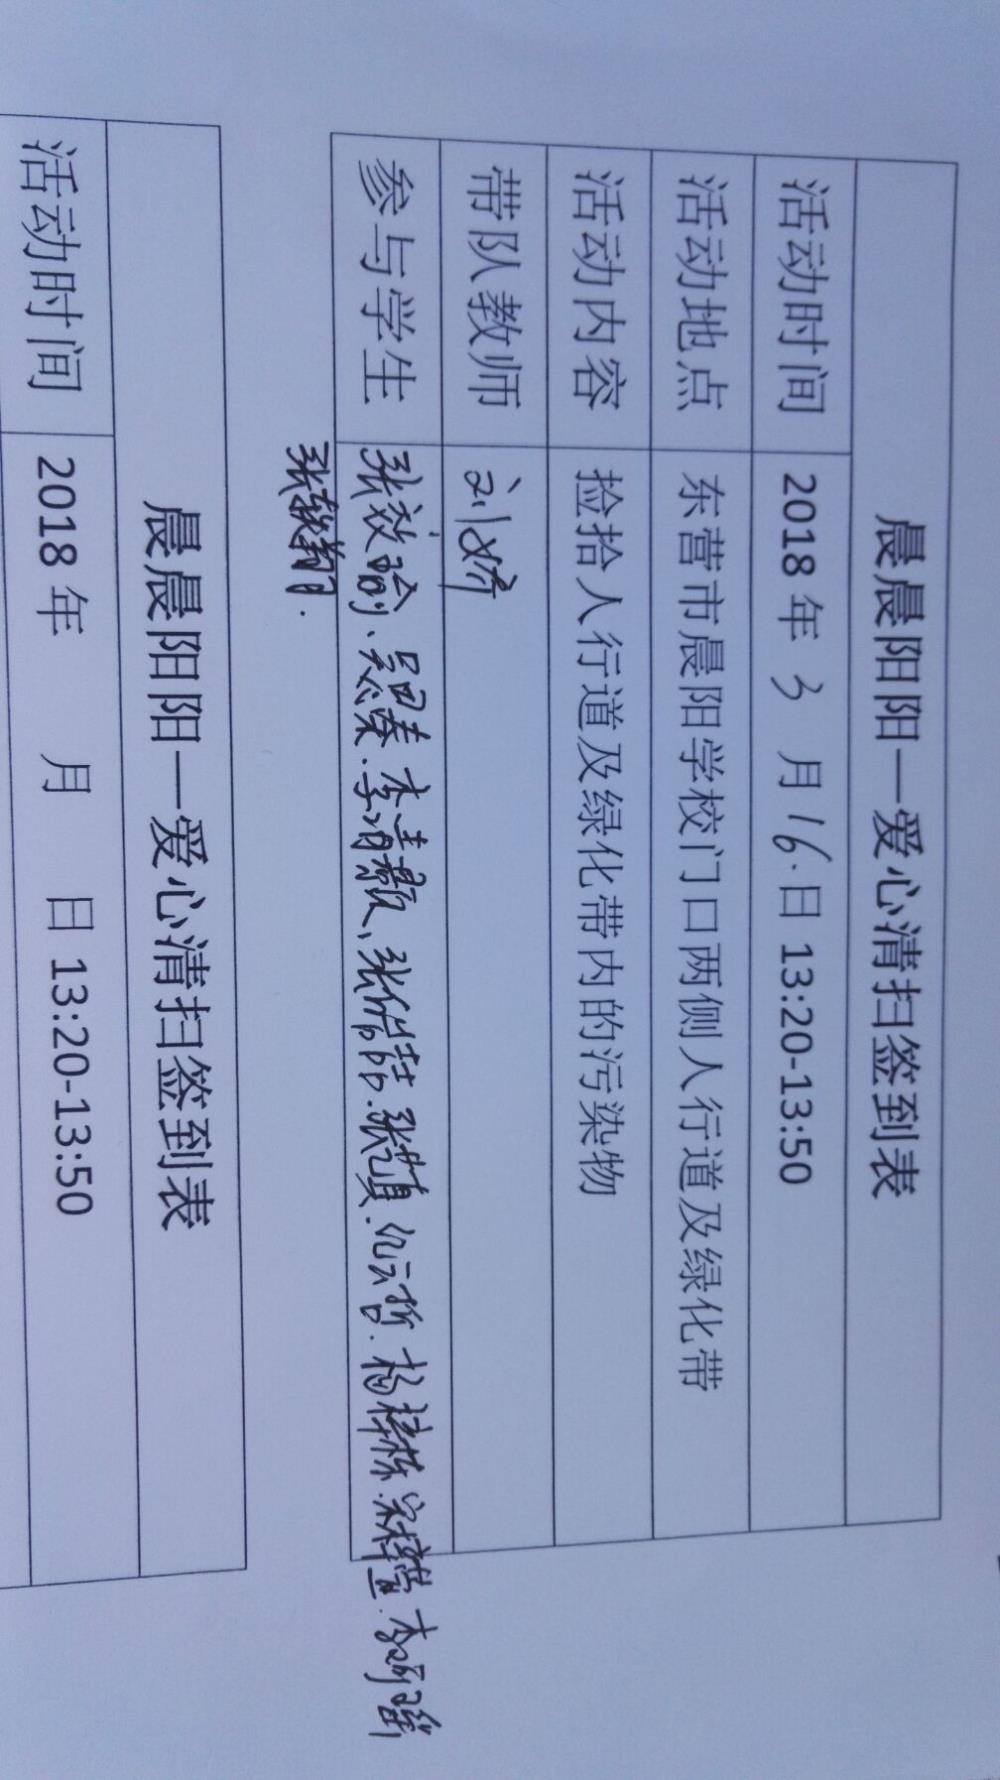 晨晨阳阳—爱心清扫签到表
活动时间 2018 年 3 月 16 日 13:20-13:50
活动地点 东营市晨阳学校门口两侧人行道及绿化带
活动内容 捡拾人行道及绿化带内的污染物
带队教师 刘娇
参与学生 张效瑜、吴思蓁.李清灏、张倍喆.张艺真.仉云哲.杨梓栋.李
张轶翔.
晨晨阳阳—爱心清扫签到表
活动时间 2018 年 月 日 13:20-13:50